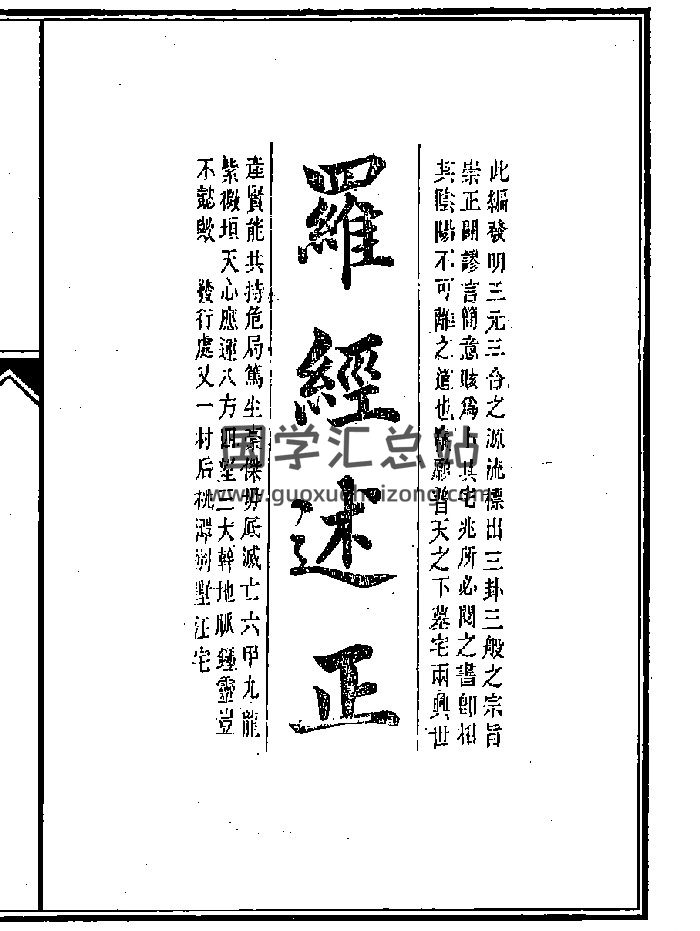 此編發明三元三合之源流標出三卦三般之宗旨
崇正闢謬言簡意賅為卜其宅兆所必閱之書即相
其陰陽不可離之道也 願普天之下墓宅兩興世
羅經述正
產賢能共持危局篤生豪傑 底滅亡六甲九龍
紫微垣天心應運八方 望三大幹地脈鍾靈豈
不懿歟 發行處乂一村后桃潭別墅江宅
国学汇总站
www.guoxuehuizong.com